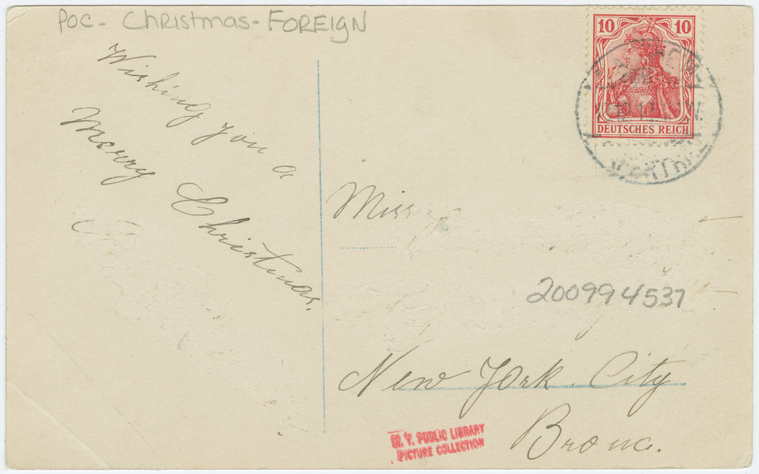 POC - Christmas - FOREIGN
10 10
DEUTSCHES REICH
Wishing you a
Merry Christmas.
Miss
200994537
New York City
Bronx.
N. Y. PUBLIC LIBRARY
PICTURE COLLECTION